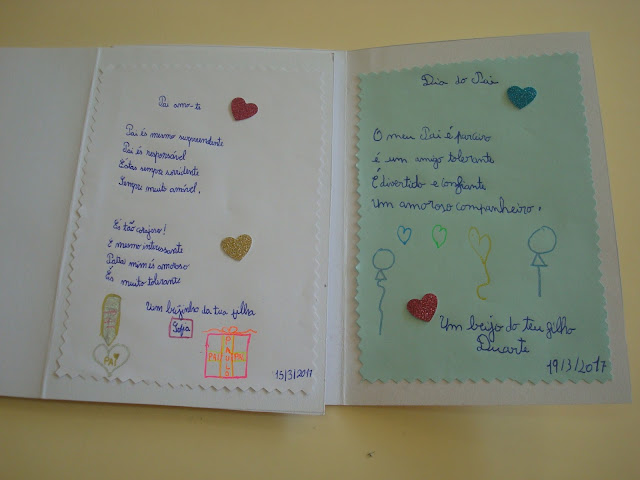 Pai amo-te
Pai és mesmo surpreendente
Pai és responsável
Estás sempre sorridente
Sempre muito amível.
És tão corajoso!
E mesmo interessante
Para mim és amoroso
És muito tolerante
Um beijinho da tua filha
Sofia
PAI
PAI
PAI
15/3/2017
Dia do Pai
O meu Pai é parceiro
é um amigo tolerante
É divertido e confiante
Um amoroso companheiro.
Um beijo do teu filho
Duarte
19/3/2017